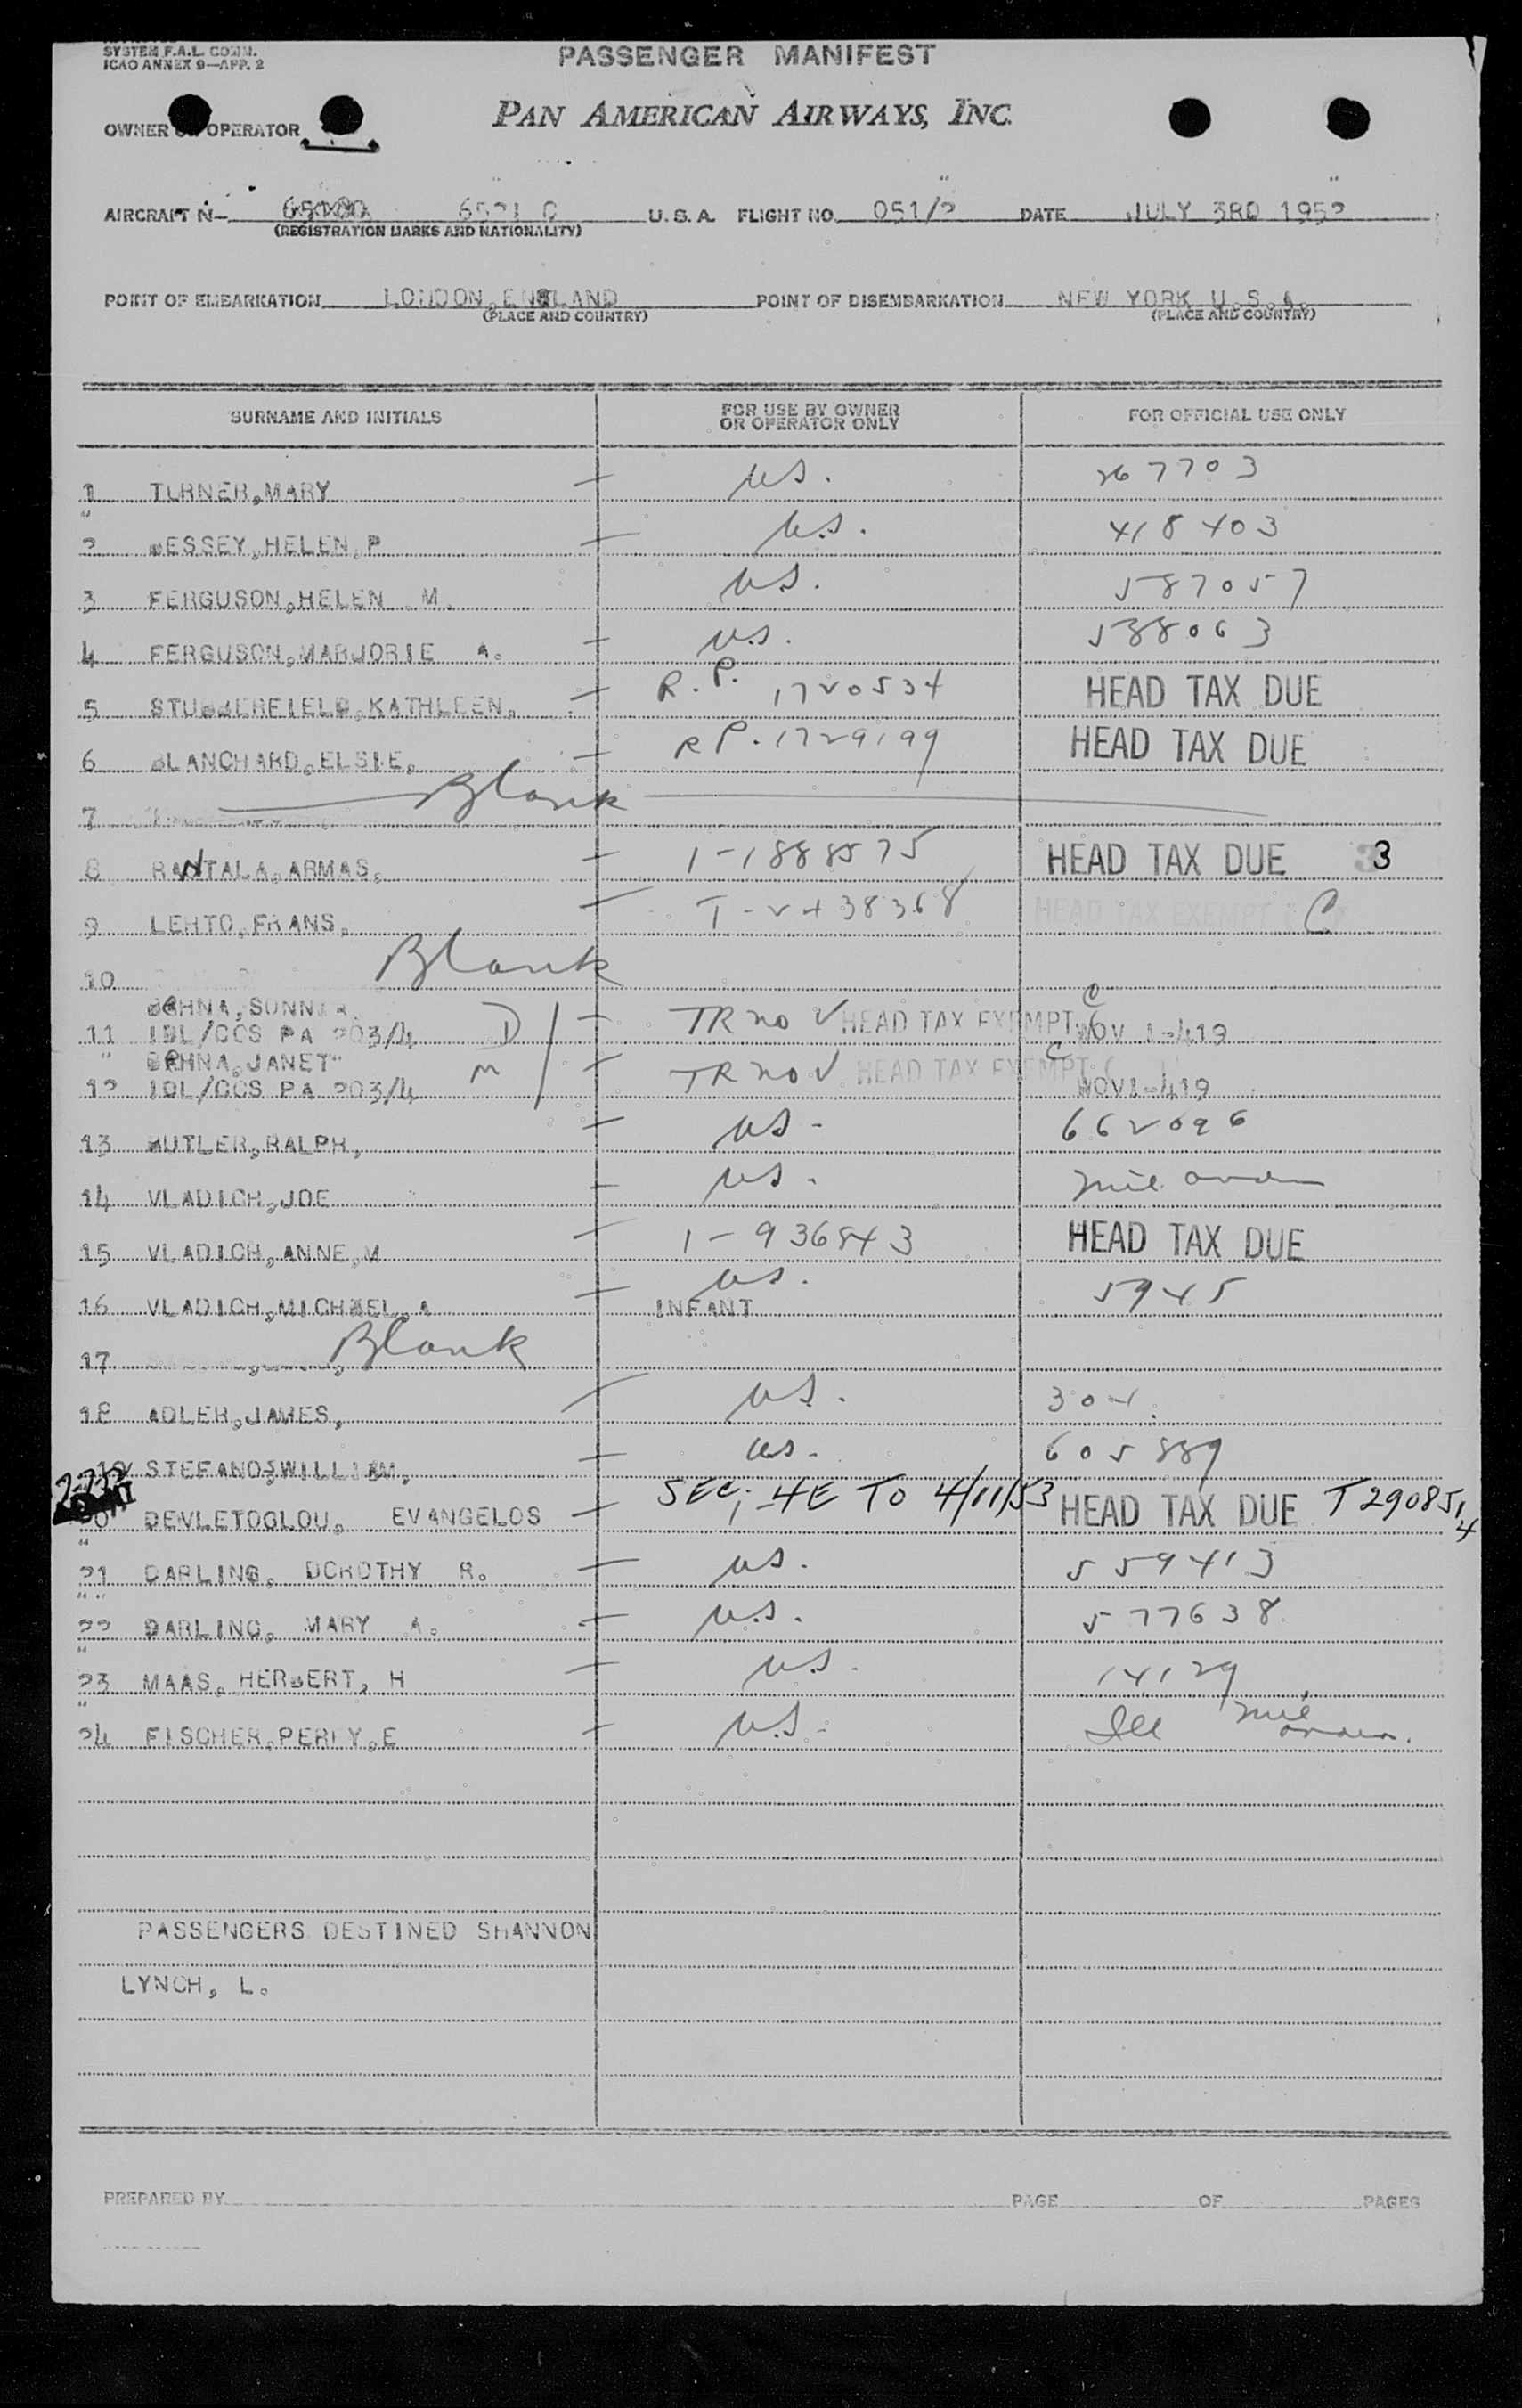 SYSTEM F.A.L. COMM.
ICAO ANNEX 9—APP. 2
PASSENGER MANIFEST
PAN AMERICAN AIRWAYS, INC.
OWNER OR OPERATOR
AIRCRAFT N— U.S.A. FLIGHT NO. 051/2 DATE JULY 3RD 1952
(REGISTRATION MARKS AND NATIONALITY)
POINT OF EMBARKATION LONDON, ENGLAND POINT OF DISEMBARKATION NEW YORK U.S.A.
(PLACE AND COUNTRY) (PLACE AND COUNTRY)
SURNAME AND INITIALS FOR USE BY OWNER OR OPERATOR ONLY FOR OFFICIAL USE ONLY
1 TURNER,MARY — US. 267703
2 ESSEY,HELEN,P — U.S. 418403
3 FERGUSON,HELEN M. US. 587057
4 FERGUSON,MARJORIE A. — U.S. 588063
5 KATHLEEN. — R.P. 1720534 HEAD TAX DUE
6 BLANCHARD,ELSIE. — RP. 1729199 HEAD TAX DUE
7 Blank
8 RANTALA,ARMAS. — 1-1888575 HEAD TAX DUE 3
9 LEHTO,FRANS. — T-2438368 HEAD TAX EXEMPT C
10 Blank
11 IDL/CCS PA 203/4 D — TR no V HEAD TAX EXEMPT C NOV 1-419
JANET
12 IDL/CCS PA 203/4 M — TR no V HEAD TAX EXEMPT C NOV 1-419
13 BUTLER,RALPH, — US- 662096
14 VLADICH,JOE — US- mil order
15 VLADICH,ANNE,M — 1-936843 HEAD TAX DUE
16 VLADICH,MICHAEL,A — US. INFANT 5945
17 Blank
18 ADLER,JAMES, — US. 304
19 STEFANO,WILLIAM, — US- 605889
20 DEVLETOGLOU, EVANGELOS — SEC; 4E TO 4/11/53 HEAD TAX DUE T 290851 4
21 DARLING, DOROTHY R. — US. 559413
22 DARLING, MARY A. — U.S. 577638
23 MAAS, HERBERT, H — US. 14129
24 FISCHER,PERCY,E — U.S- mil order.
PASSENGERS DESTINED SHANNON
LYNCH, L.
PREPARED BY PAGE OF PAGES